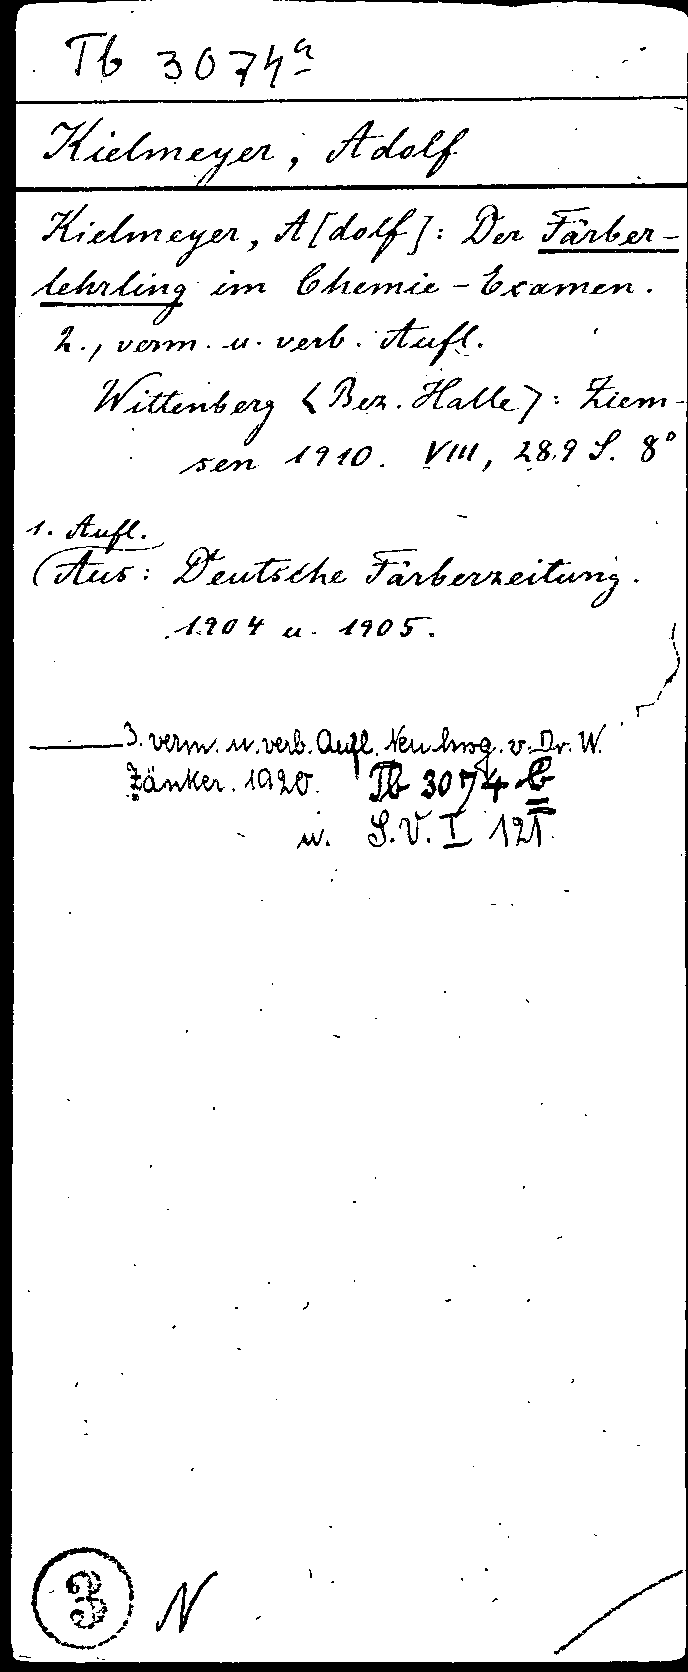 Tb 3074a
Kielmeyer, Adolf
Kielmeyer, A[dolf]: Der Färber-
lehrling im Chemie-Examen.
2., verm. u. verb. Aufl.
Wittenberg <Bez. Halle>: Ziem-
sen 1910. VIII, 289 S. 8°
1. Aufl.
(Aus: Deutsche Färberzeitung.
1904 u. 1905.
3. verm. u. verb. Aufl. Neu hrsg. v. Dr. W.
Zänker. 1920. Tb 3074 b
u. S.V. I 121
3 N